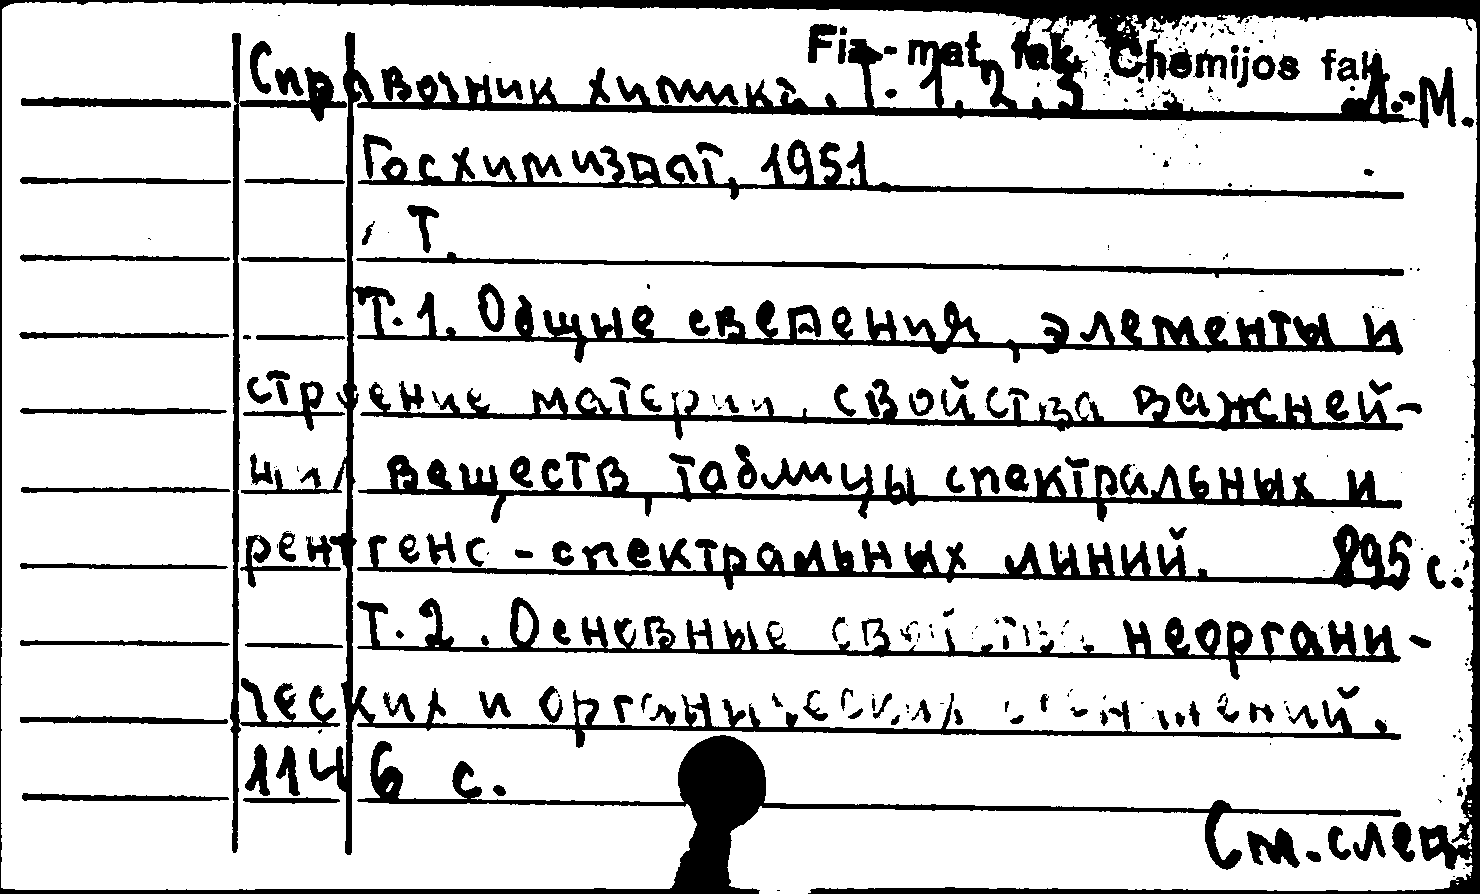 Fiz.-mat. fak. Chemijos fak.
Справочник химика. Т. 1, 2, 3 Л.-М.
Госхимиздат, 1951.
Т.
Т.1. Общие сведения, элементы и
строение материи, свойства важней-
ших веществ, таблицы спектральных и
рентгено-спектральных линий. 895 с.
Т.2. Основные свойства неоргани-
ческих и органических соединений.
1146 с.
См. след